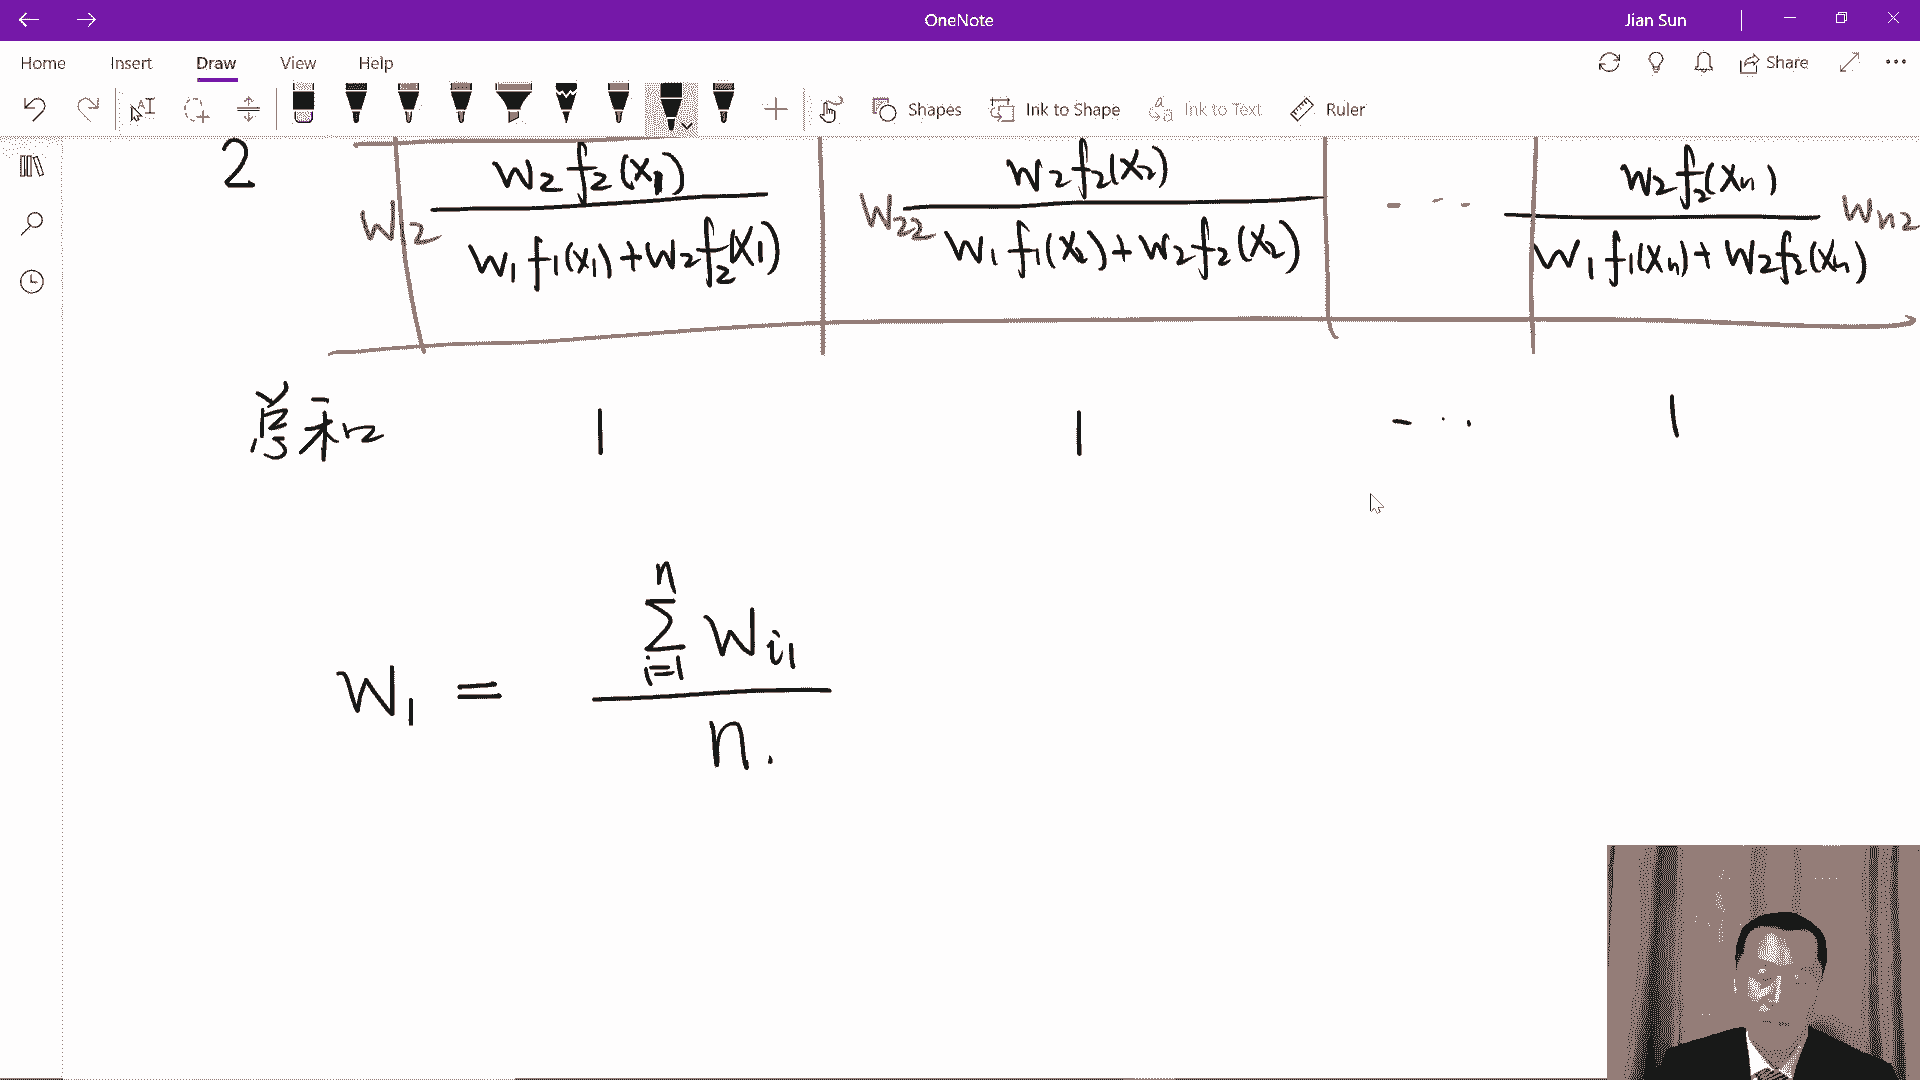 OneNote
Jian Sun
Home Insert Draw View Help
Share
Shapes Ink to Shape Ink to Text Ruler
2
W12 w2 f2(x1) / w1 f1(x1) + w2 f2(x1)
W22 w2 f2(x2) / w1 f1(x2) + w2 f2(x2)
- - - -
w2 f2(xn) / w1 f1(xn) + w2 f2(xn) Wn2
总和 1 1 - · · 1
W1 = Σ i=1 n Wi1 / n.